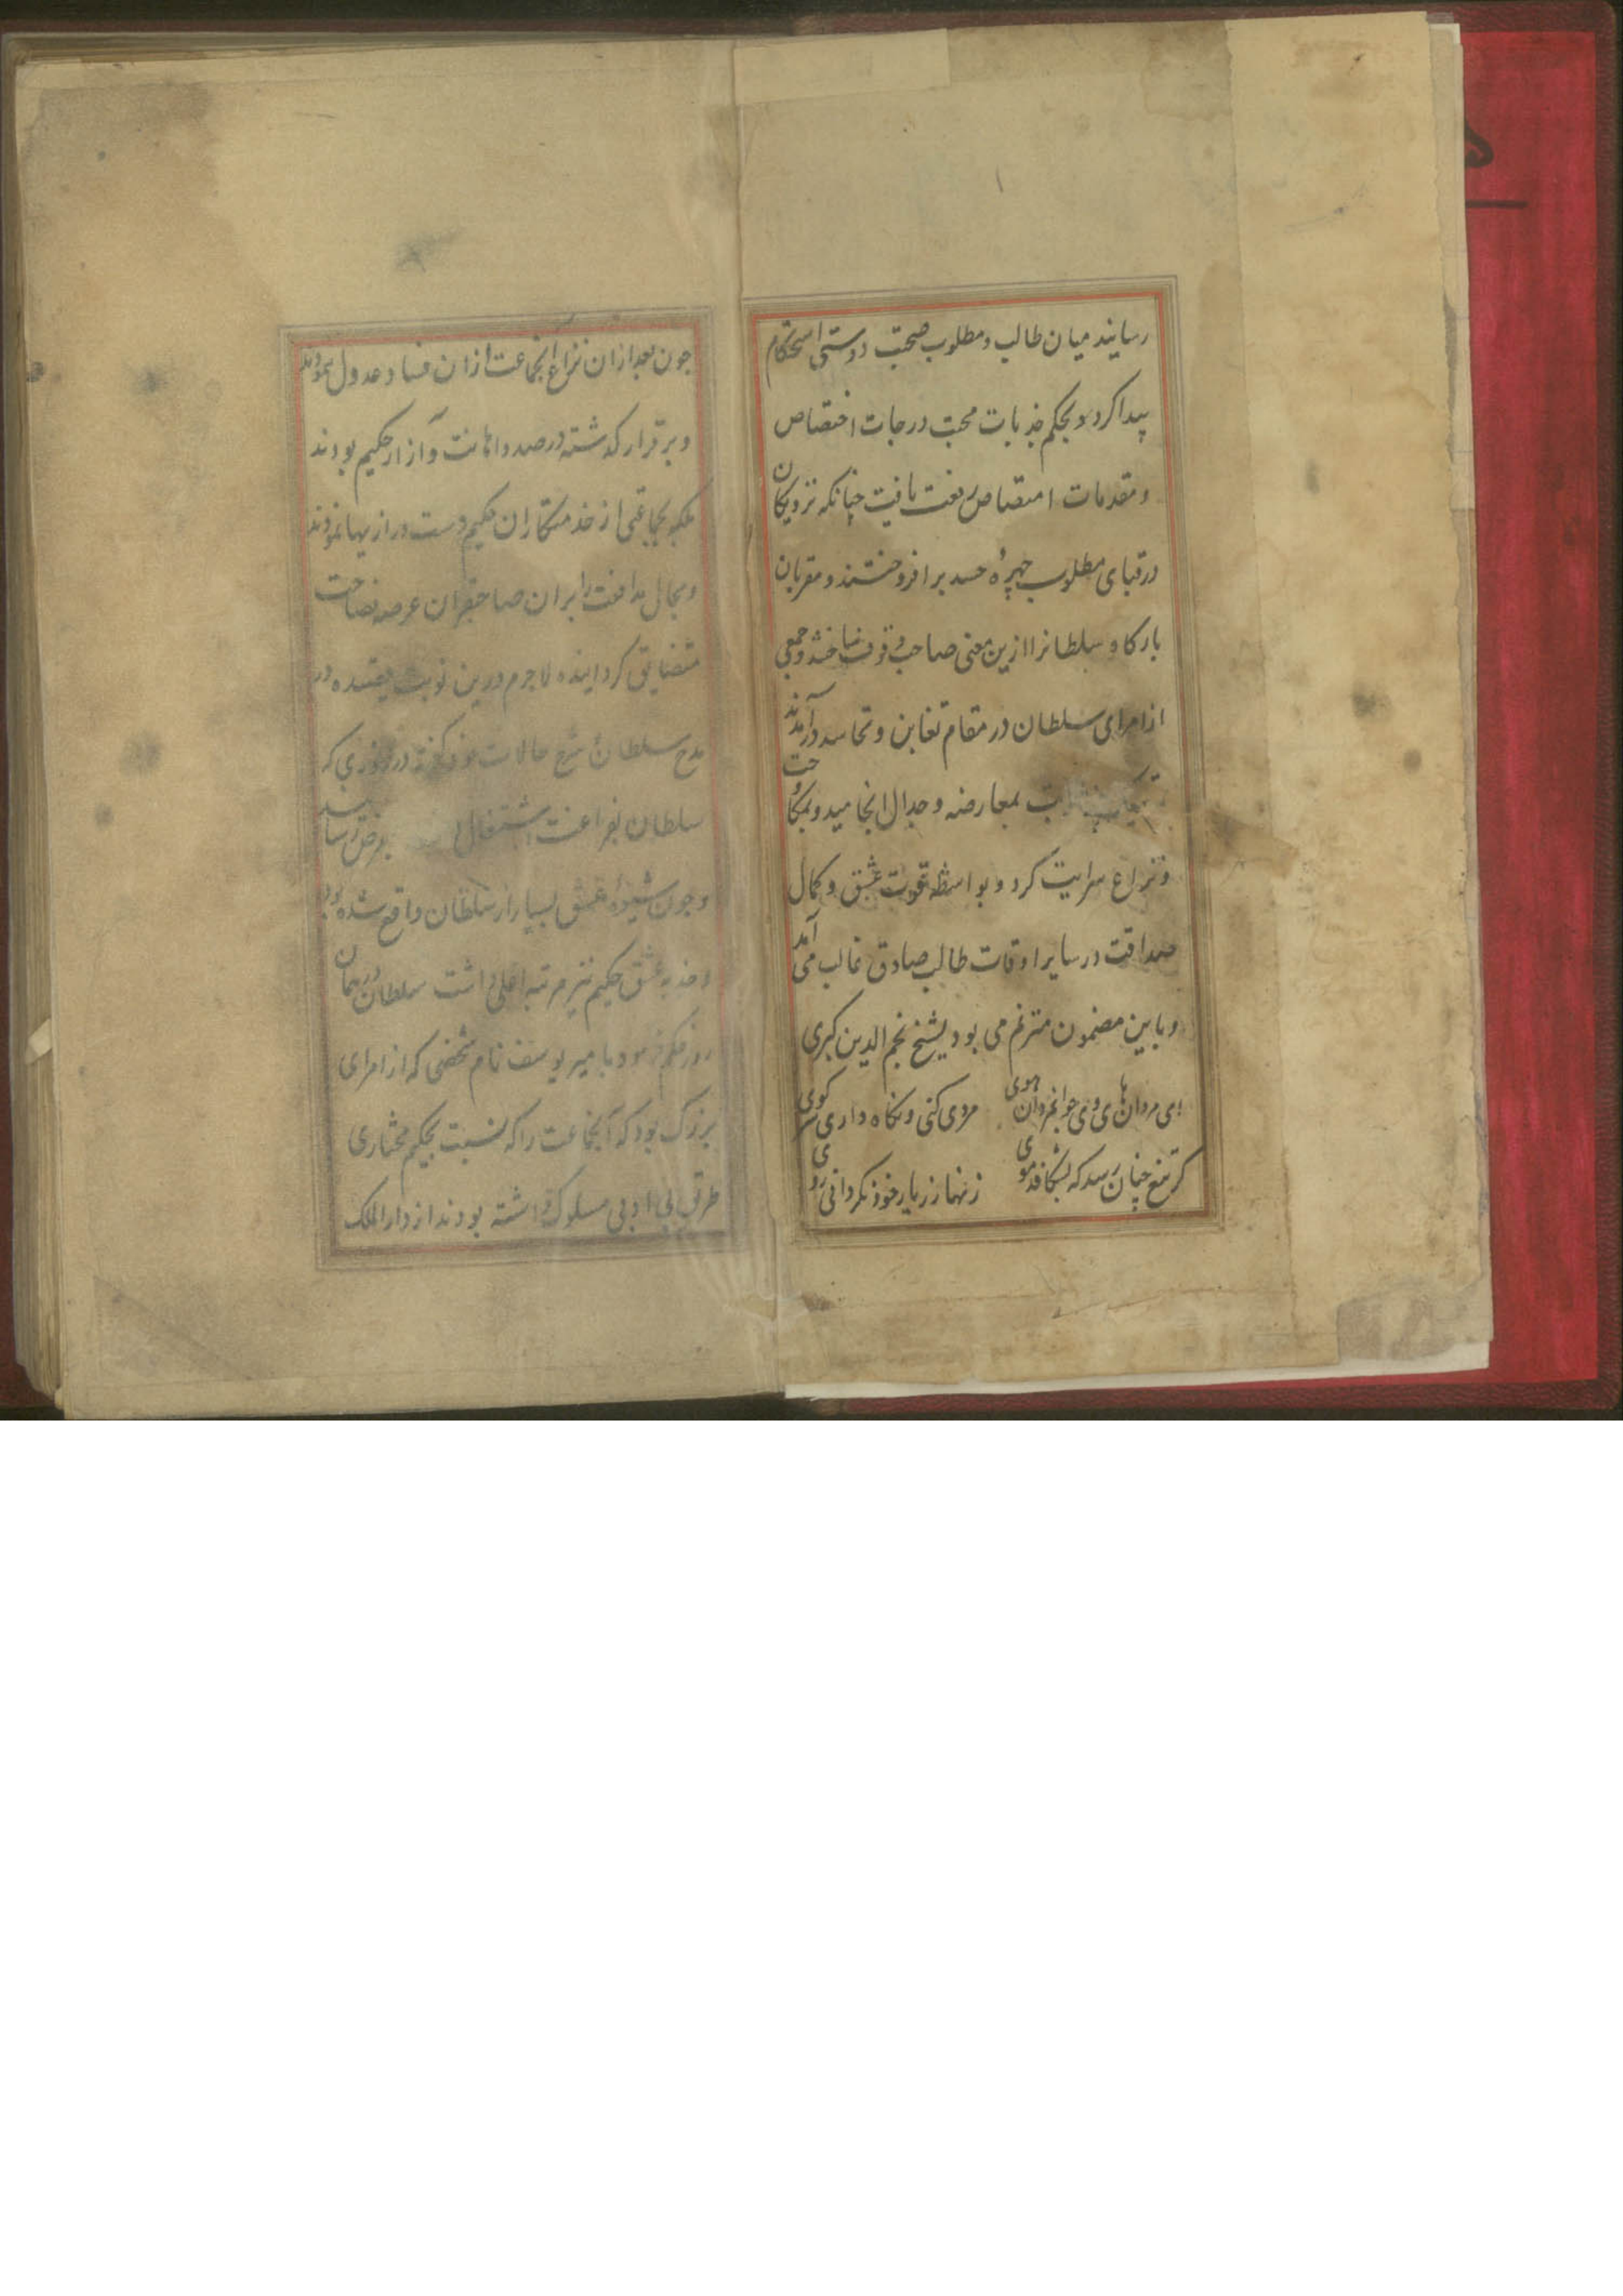 رسانید میان طالب و مطلوب صحبت دوستی استحکام
پیدا کرد و بحکم جذبات محبت درجات اختصاص
و مقدمات امتصاص رفعت یافت چنانکه نزدیکان
در قبای مطلوب چهرهٔ حسد برافروختند و مقربان
بارکاه سلطانرا ازین معنی صاحب وقوف ساختند و جمعی
از امرای سلطان در مقام تغابن و تحاسد درآمدند
بمعارضه و جدال انجامید و بمکاوحت
و نزاع سرایت کرد و بواسطه قوت عشق و کمال
صداقت در سایر اوقات طالب صادق غالب می آمد
و باین مضمون مترنم می بود لشیخ نجم الدین کبری
ای مردان های وی جوانمردان هوی مردی کنی و نکاه داری سر کوی
کر تیغ چنان رسد که بشکافد موی زنهار ز یار خود نکردانی روی
جون بعد ازان نزاع آنجماعت ازان فساد عدول ننمودند
و برقرار کذشته در صدد اهانت و آزار حکیم بودند
بلکه بجماعتی از خدمتکاران حکیم دست درازیها نمودند
و مجال مدافعت را بران صاحبقران عرصه فصاحت
متضایق کردانیده لاجرم درین نوبت قصیده در
مدح سلطان شرح حالات خود کفته در روزی که
سلطان بفراغت اشتغال بعرض رسانید
و جون شیوهٔ عشق بسیار از سلطان واقع شده بود
و جذبه عشق حکیم نیز مرتبه اعلی داشت سلطان در همان
روز حکم فرمود بامیر یوسف نام شخصی که از امرای
بزرک بود که آنجماعت را که نسبت بحکیم مختاری
طریق بی ادبی مسلوک داشته بودند از دارالملک